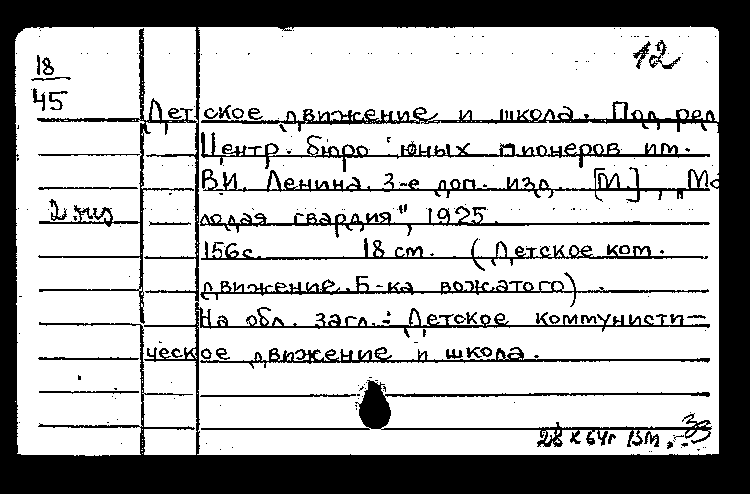 18
45
12
Детское движение и школа. Под ред.
Центр. бюро юных пионеров им.
В.И. Ленина. 3-е доп. изд. [М.], „Мо
2 экз
лодая гвардия", 1925.
156с. 18 см. (Детское ком.
движение. Б-ка вожатого).
На обл. загл.: Детское коммунисти-
ческое движение и школа.
28 X 64г ВМ.